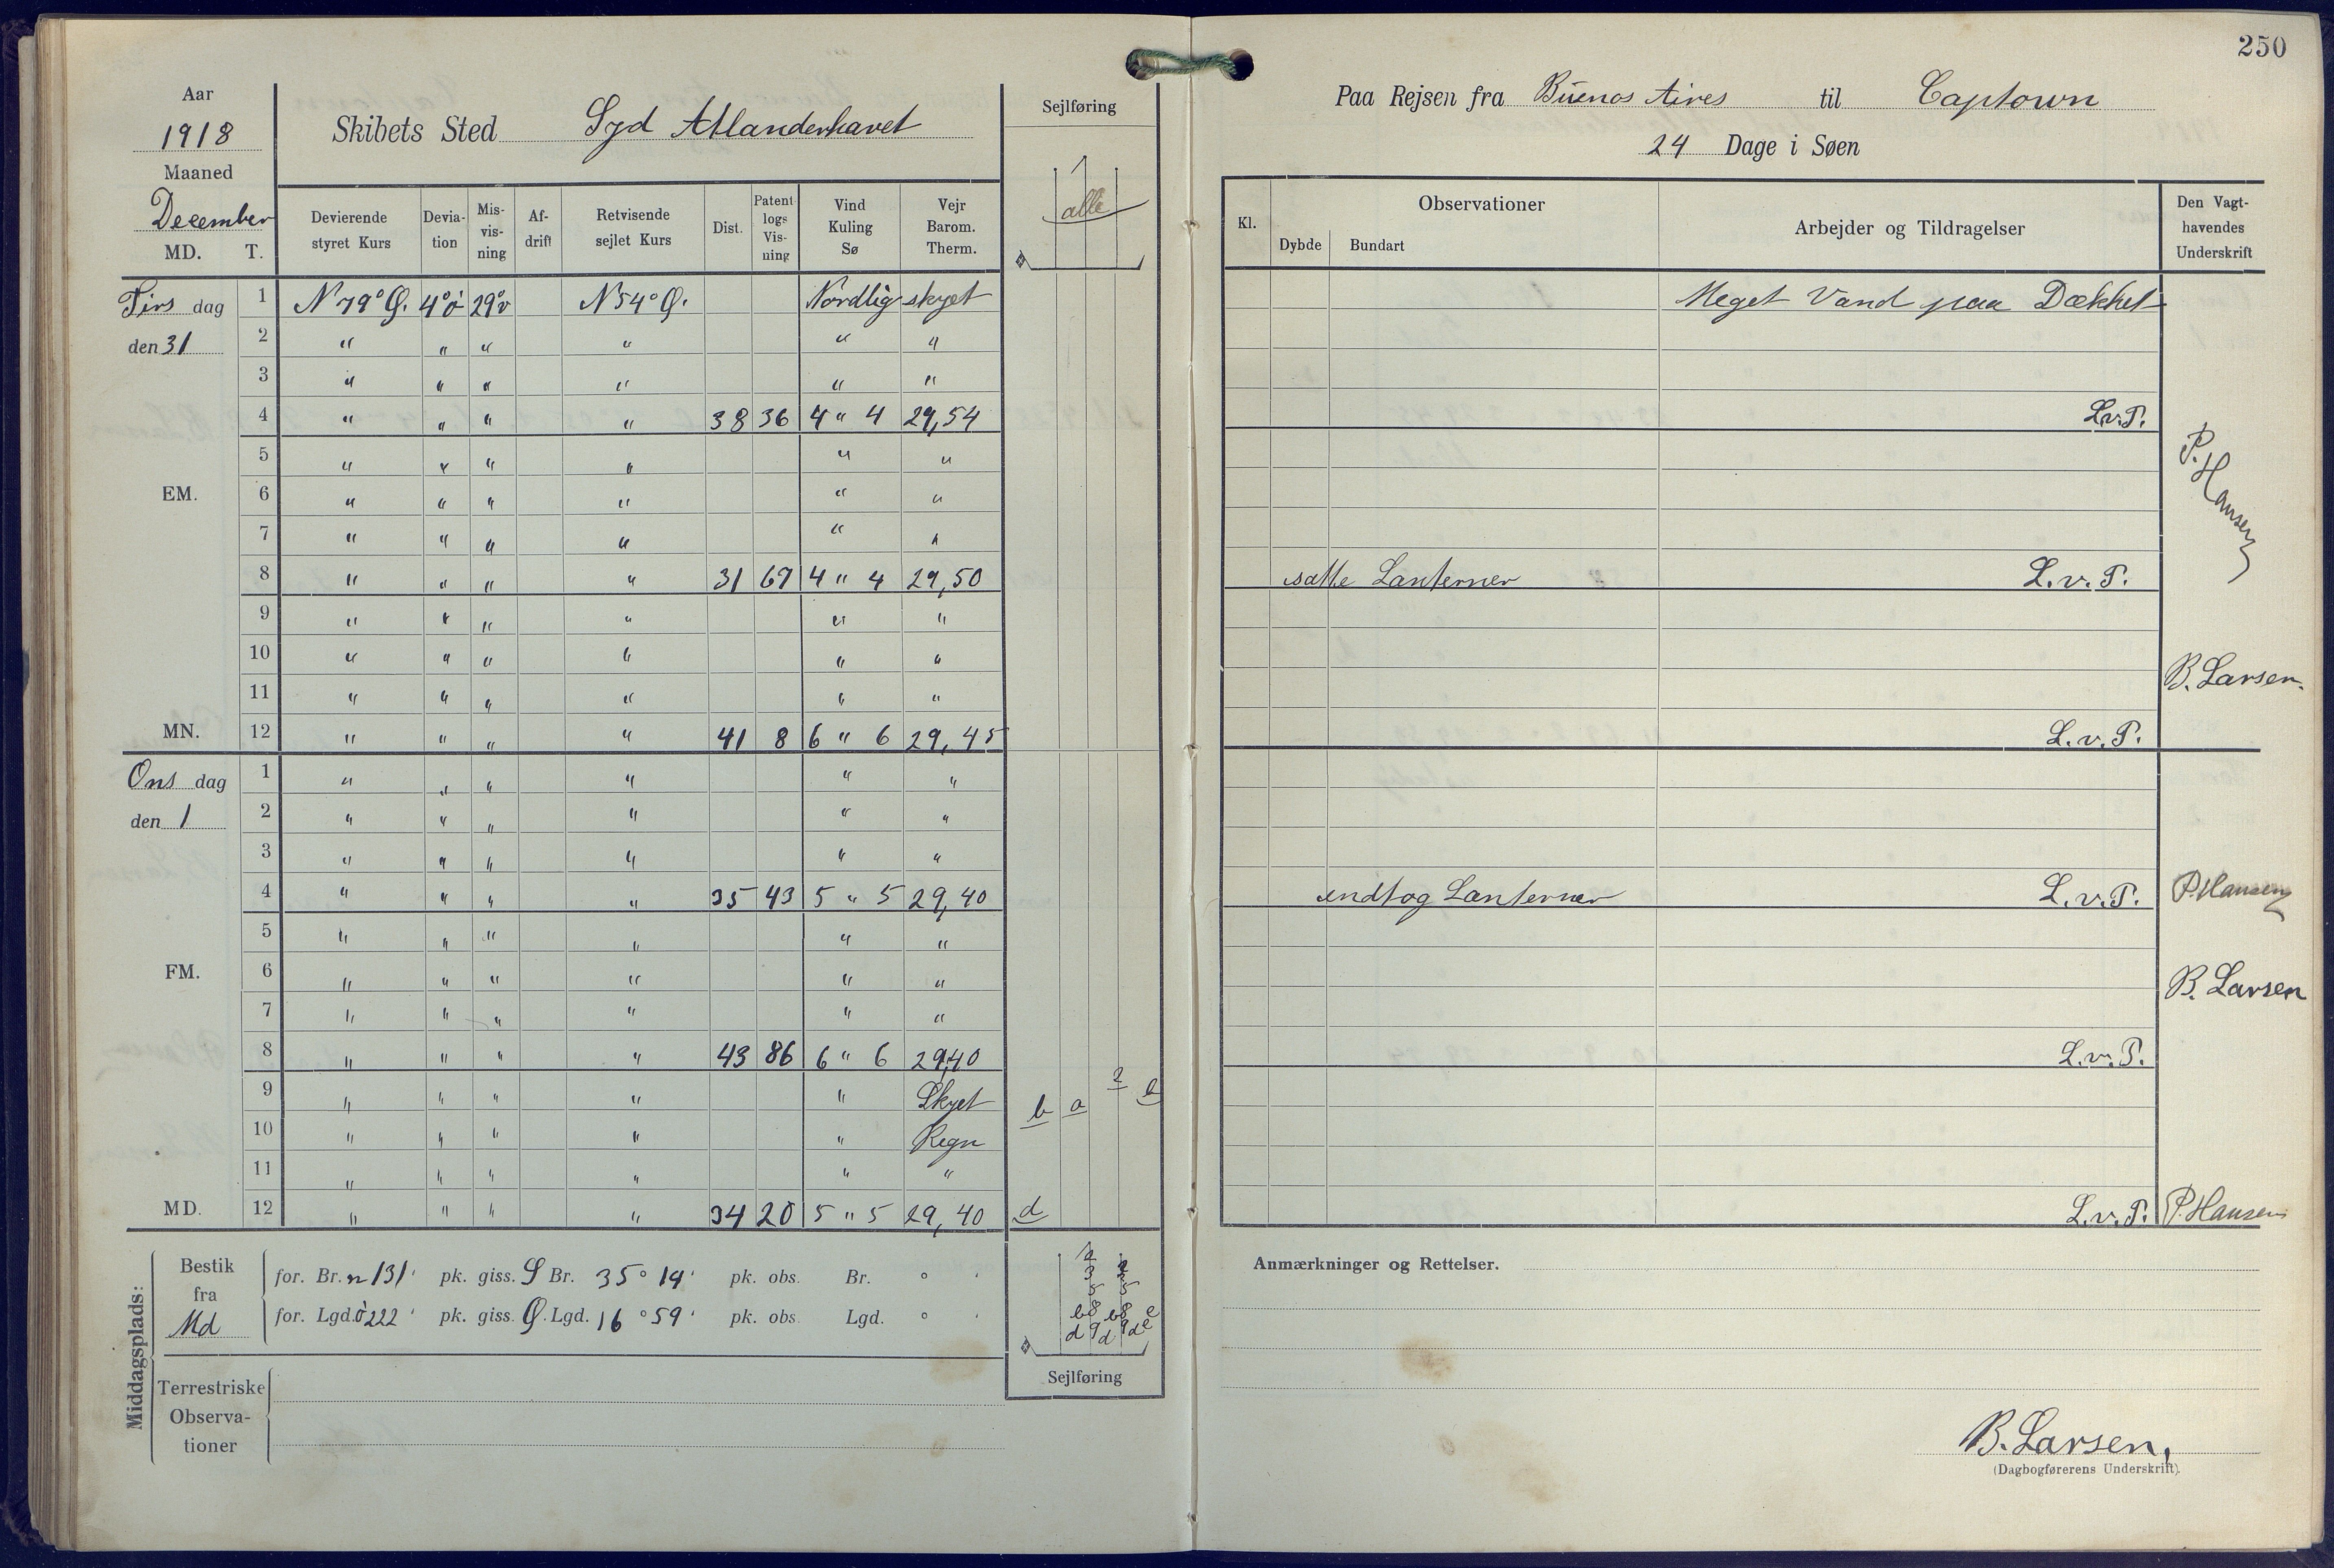 250
Aar
1918
Maaned
December
MD. T.
Skibets Sted Syd Atlanderhavet
Sejlføring
alle
Paa Rejsen fra Buenos Aires til Captown
24 Dage i Søen
Devierende styret Kurs | Devia-tion | Mis-vis-ning | Af-drift | Retvisende sejlet Kurs | Dist. | Patent logs Vis-ning | Vind Kuling Sø | Vejr Barom. Therm.
Kl. | Observationer | Dybde | Bundart | Arbejder og Tildragelser | Den Vagt-havendes Underskrift
Tirs dag 1 N 79° Ø. 4°ö 29°v N 54° Ø. Nordlig skyet Meget Vand paa Dækket
den 31 2 " " " " " "
3 " " " " " "
4 " " " " 38 36 4 " 4 29,54 L.v.P.
P. Hansen
5 " " " " " "
EM. 6 " " " " " "
7 " " " " " "
8 " " " " 31 67 4 " 4 29,50 satte Lanterner L.v.P.
9 " " " " " "
10 " " " " " " B. Larsen.
11 " " " " " "
MN. 12 " " " " 41 8 6 " 6 29,45 L.v.P.
Ons dag 1 " " " " " "
den 1 2 " " " " " "
3 " " " " " "
4 " " " " 35 43 5 " 5 29,40 indtog Lanterner L.v.P. P. Hansen
5 " " " " " "
FM. 6 " " " " " " B. Larsen
7 " " " " " "
8 " " " " 43 86 6 " 6 29,40 L.v.P.
9 " " " " " Skyet b a 2 e
10 " " " " " Regn
11 " " " " " "
MD. 12 " " " " 34 20 5 " 5 29,40 d L.v.P. P. Hansen
Middagsplads:
Bestik fra Md
for. Br. n 131' pk. giss. S Br. 35° 14' pk. obs. Br. ° '
for. Lgd. ö 222' pk. giss. Ø. Lgd. 16° 59' pk. obs. Lgd. ° '
Terrestriske
Observa-
tioner
Sejlføring
Anmærkninger og Rettelser.
B. Larsen,
(Dagbogførerens Underskrift).